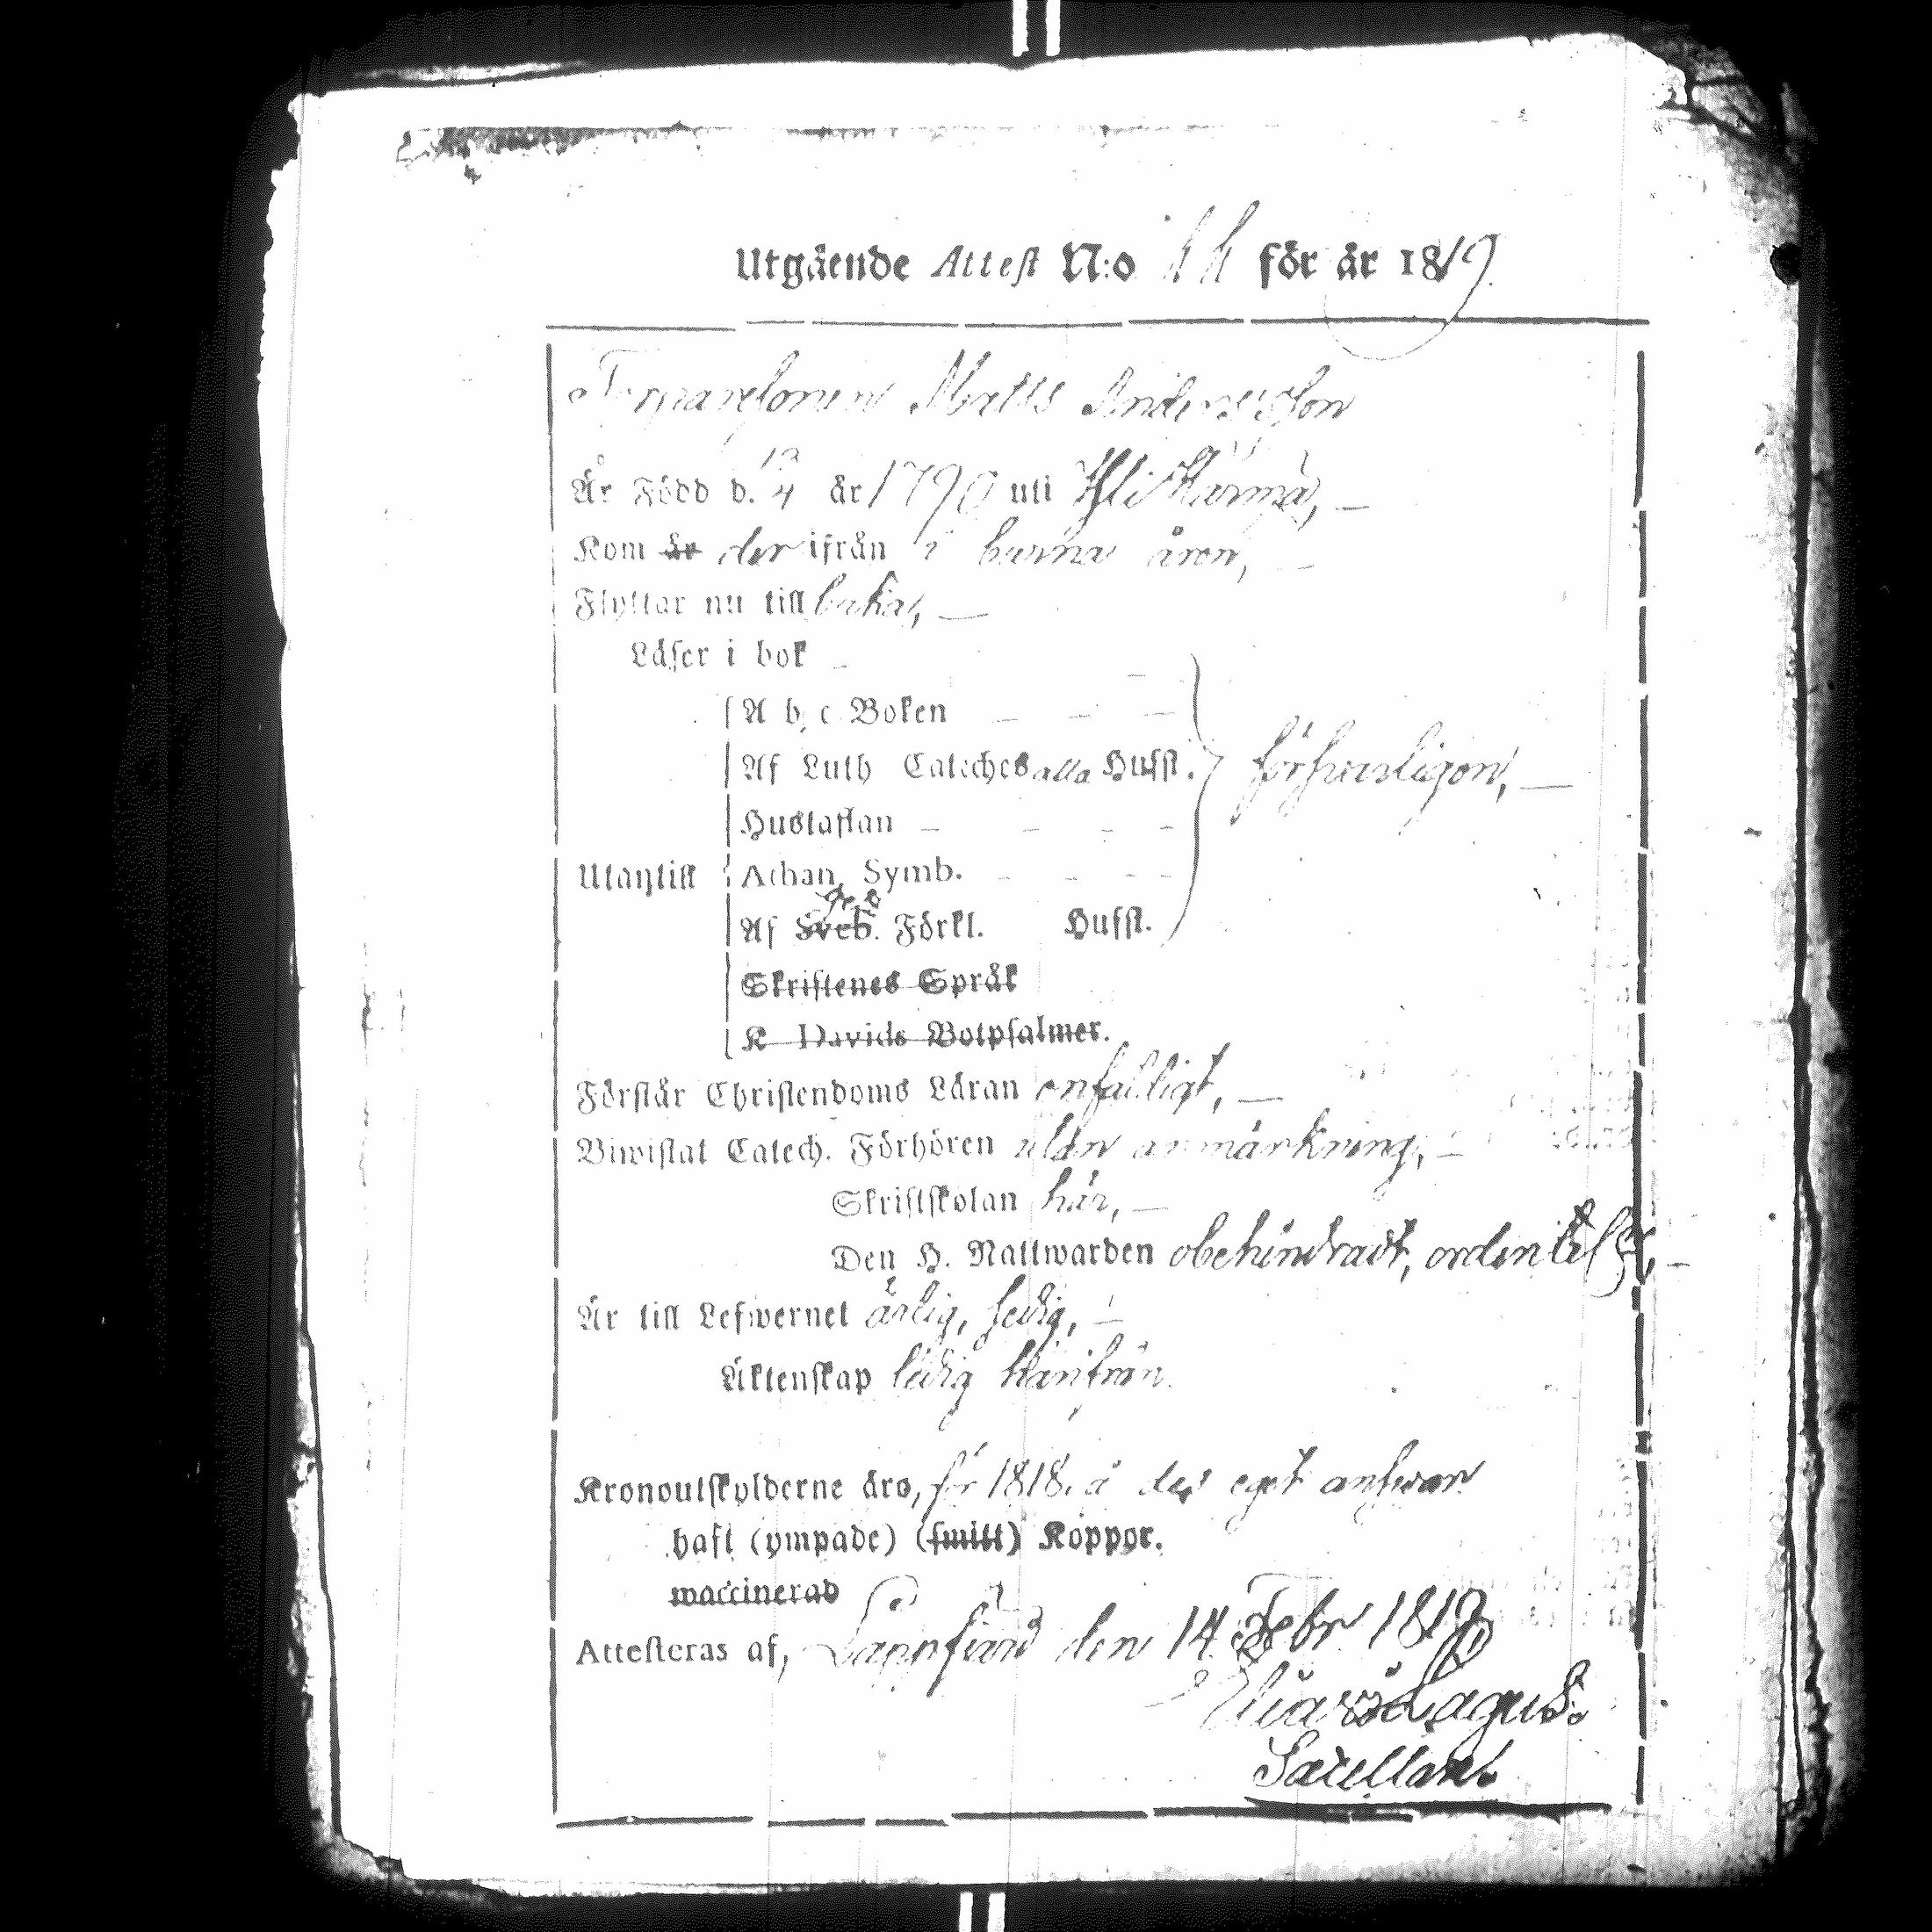 Utgående Attest N:o 44 för år 1819.
Torparesonen Matts Andersson
Är Född d. 12/4 år 1790 uti Yli Härmä,
Kom år der ifrån i barna åren,
Flyttar nu till baka,
Läser i bok
A b c Boken
Af Luth Cateches alla Hufst.
försvarligen,
Hustaflan
Utantill Athan. Symb.
Af Sveb. Förkl. Hufst.
Skriftenes Språk
K Davids Botpsalmer.
Förstår Christendoms Läran enfaldigt,
Biwistat Catech. Förhören utan anmärkning,
Skriftskolan här,
Den H. Nattwarden obehindradt, ordentel.
Är till Lefwernet ärlig, sedig,
Äktenskap ledig härifrån.
Kronoutskylderne äro, för 1818. å des eget answar
haft (ympade) (smitt) Koppor.
waccinerad
Attesteras af, Lappfiärd den 14 Febr 1819
Elias Lagus.
Sacellan.